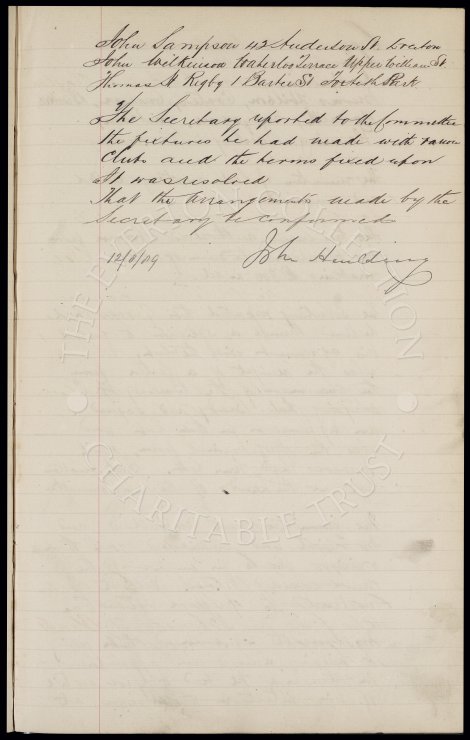 John Sampson 42 Anderson St. Everton
John Wilkinson Waterloo Terrace Upper William St
Thomas H Rigby 1 Barter St Toxteth Park
The Secretary reported to the Committee
the fixtures he had made with various
Clubs and the terms fixed upon
It was resolved
That the arrangements made by the
Secretary be confirmed
12/8/89 John Houlding
THE EVERTON COLLECTION
CHARITABLE TRUST